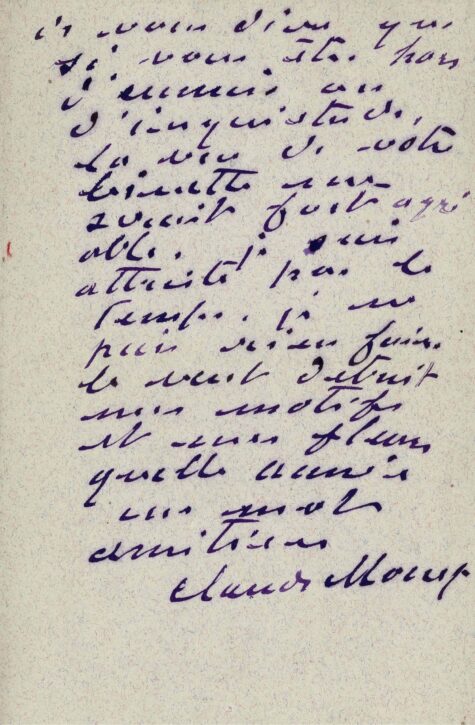 vous dire que
si vous êtes hors
d'ennuis ou
d'inquiétude,
la vue de votre
binette me
serait fort agré
able. je suis
attristé par le
temps, je ne
puis rien faire
le vent détruit
mes motifs
et mes fleurs
quelle année
un mot
amitiés
Claude Monet